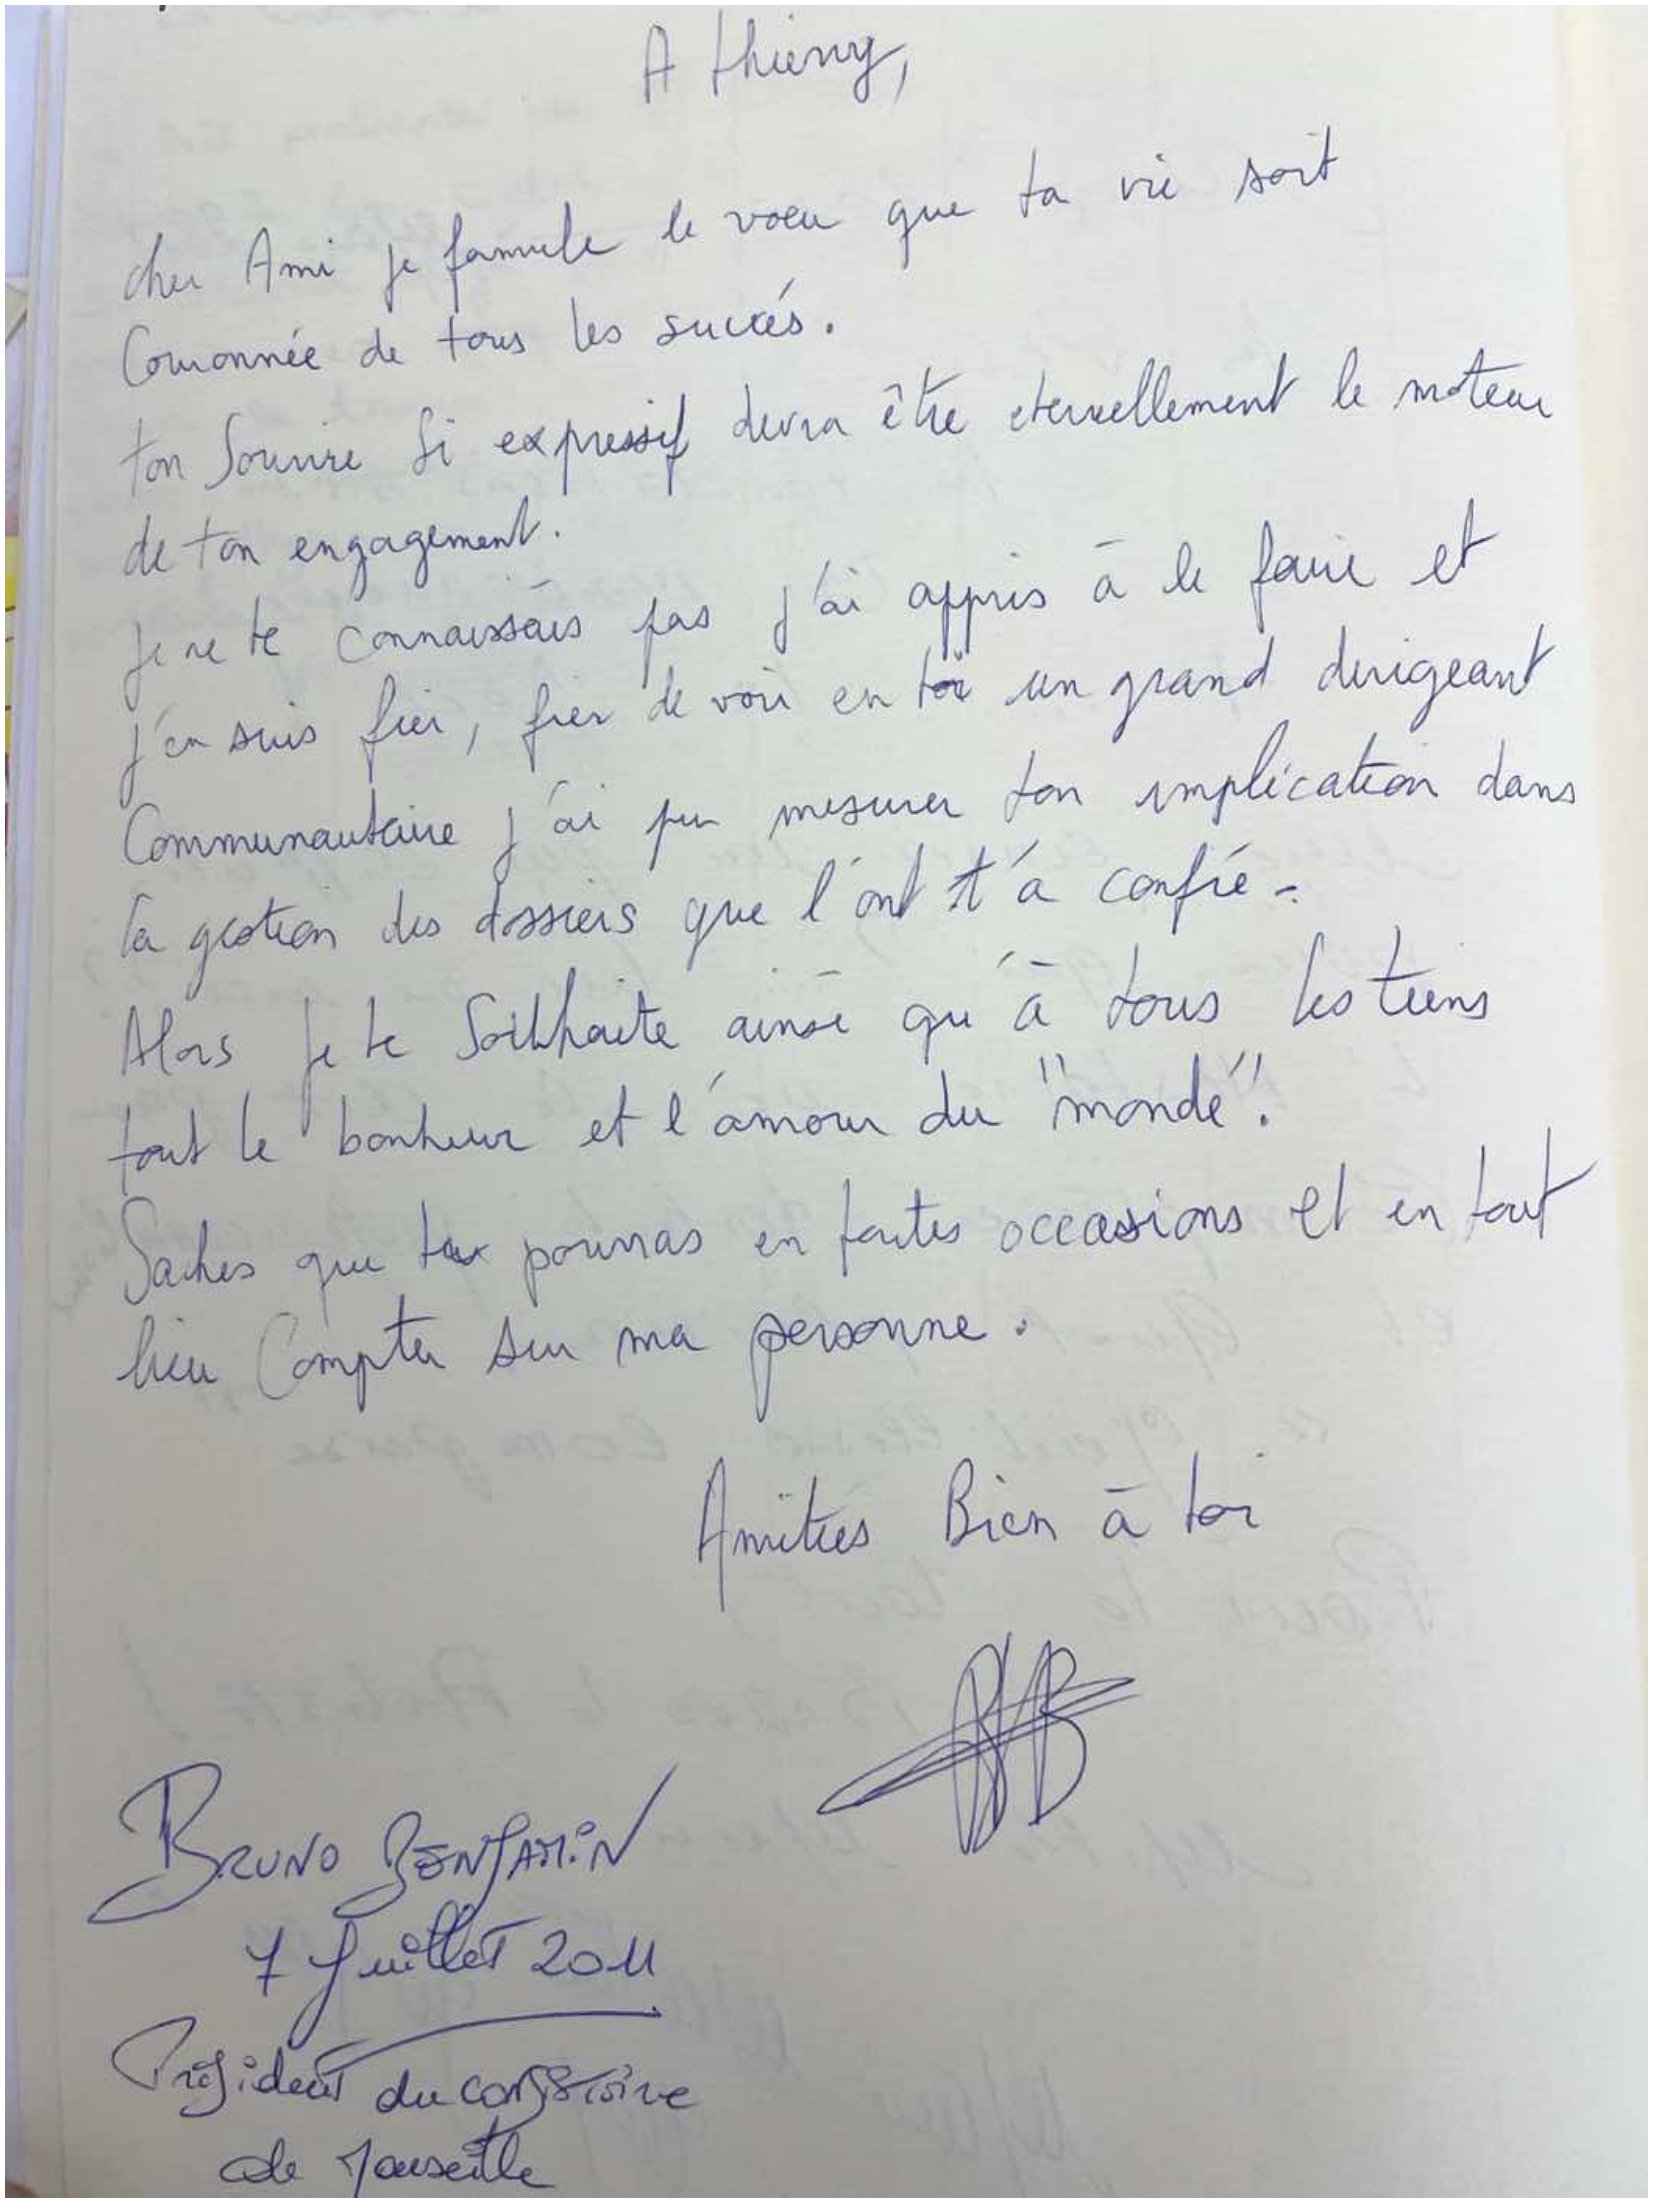 A thierry,
cher Ami je formule le voeu que ta vie soit
Couronnée de tous les succés.
ton Sourire Si expressif devra être eternellement le moteur
de ton engagement.
je ne te connaissais pas j'ai appris à le faire et
j'en suis fier, fier de voir en toi un grand dirigeant
Communautaire j'ai pu mesurer ton implication dans
la gestion des dossiers que l'ont t'a confié.
Alors je te Souhaite ainsi qu'à tous les tiens
tout le bonheur et l'amour du "monde".
Saches que tu pourras en toutes occasions et en tout
lieu Compter sur ma personne.
Amitiés Bien à toi
BRUNO BENJAMIN
7 Juillet 2011
Président du consistoire
de Marseille